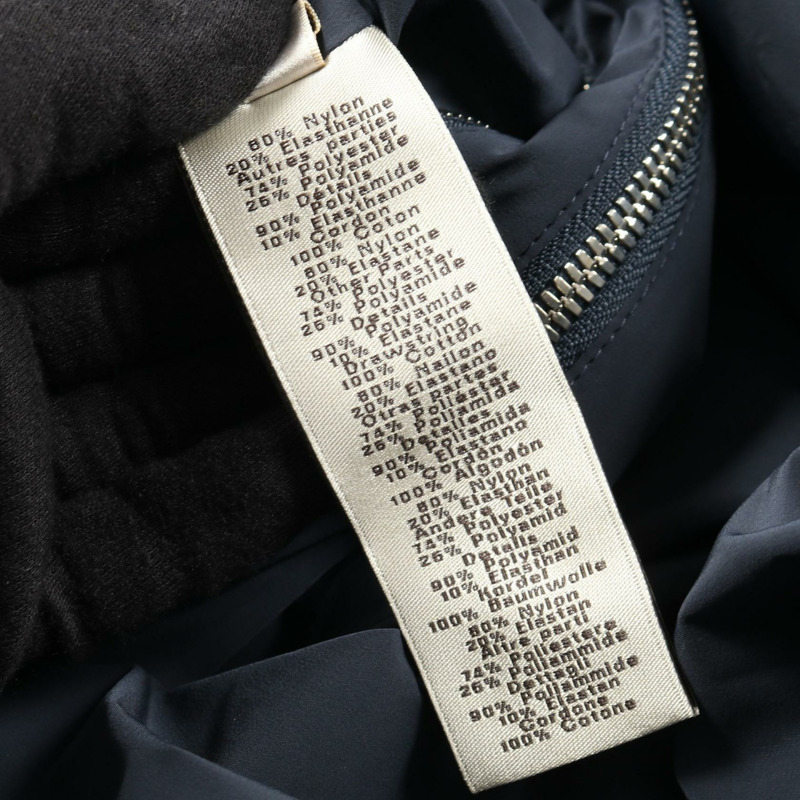 80% Nylon
20% Elasthanne
Autres parties
74% Polyester
26% Polyamide
Details
90% Polyamide
10% Elasthanne
Cordon
100% Coton
80% Nylon
20% Elastane
Other Parts
74% Polyester
26% Polyamide
Details
90% Polyamide
10% Elastane
Drawstring
100% Cotton
80% Nailon
20% Elastano
Otras Partes
74% Poliester
26% Poliamida
Detalles
90% Poliamida
10% Elastano
Cordón
100% Algodón
80% Nylon
20% Elasthan
Andere Teile
74% Polyester
26% Polyamid
Details
90% Polyamid
10% Elasthan
Kordel
100% Baumwolle
80% Nylon
20% Elastan
Altre parti
74% Poliestere
26% Poliammide
Dettagli
90% Poliammide
10% Elastan
Cordone
100% Cotone